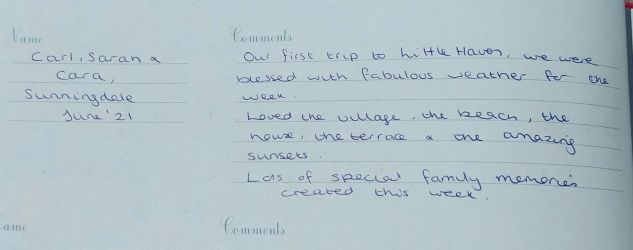 Name
Carl, Sarah &
Cara,
Sunningdale
June '21
Comments
Our first trip to Little Haven, we were
blessed with fabulous weather for the
week.
Loved the village, the beach, the
house, the terrace & the amazing
sunsets.
Lots of special family memories
created this week.
ame
Comments